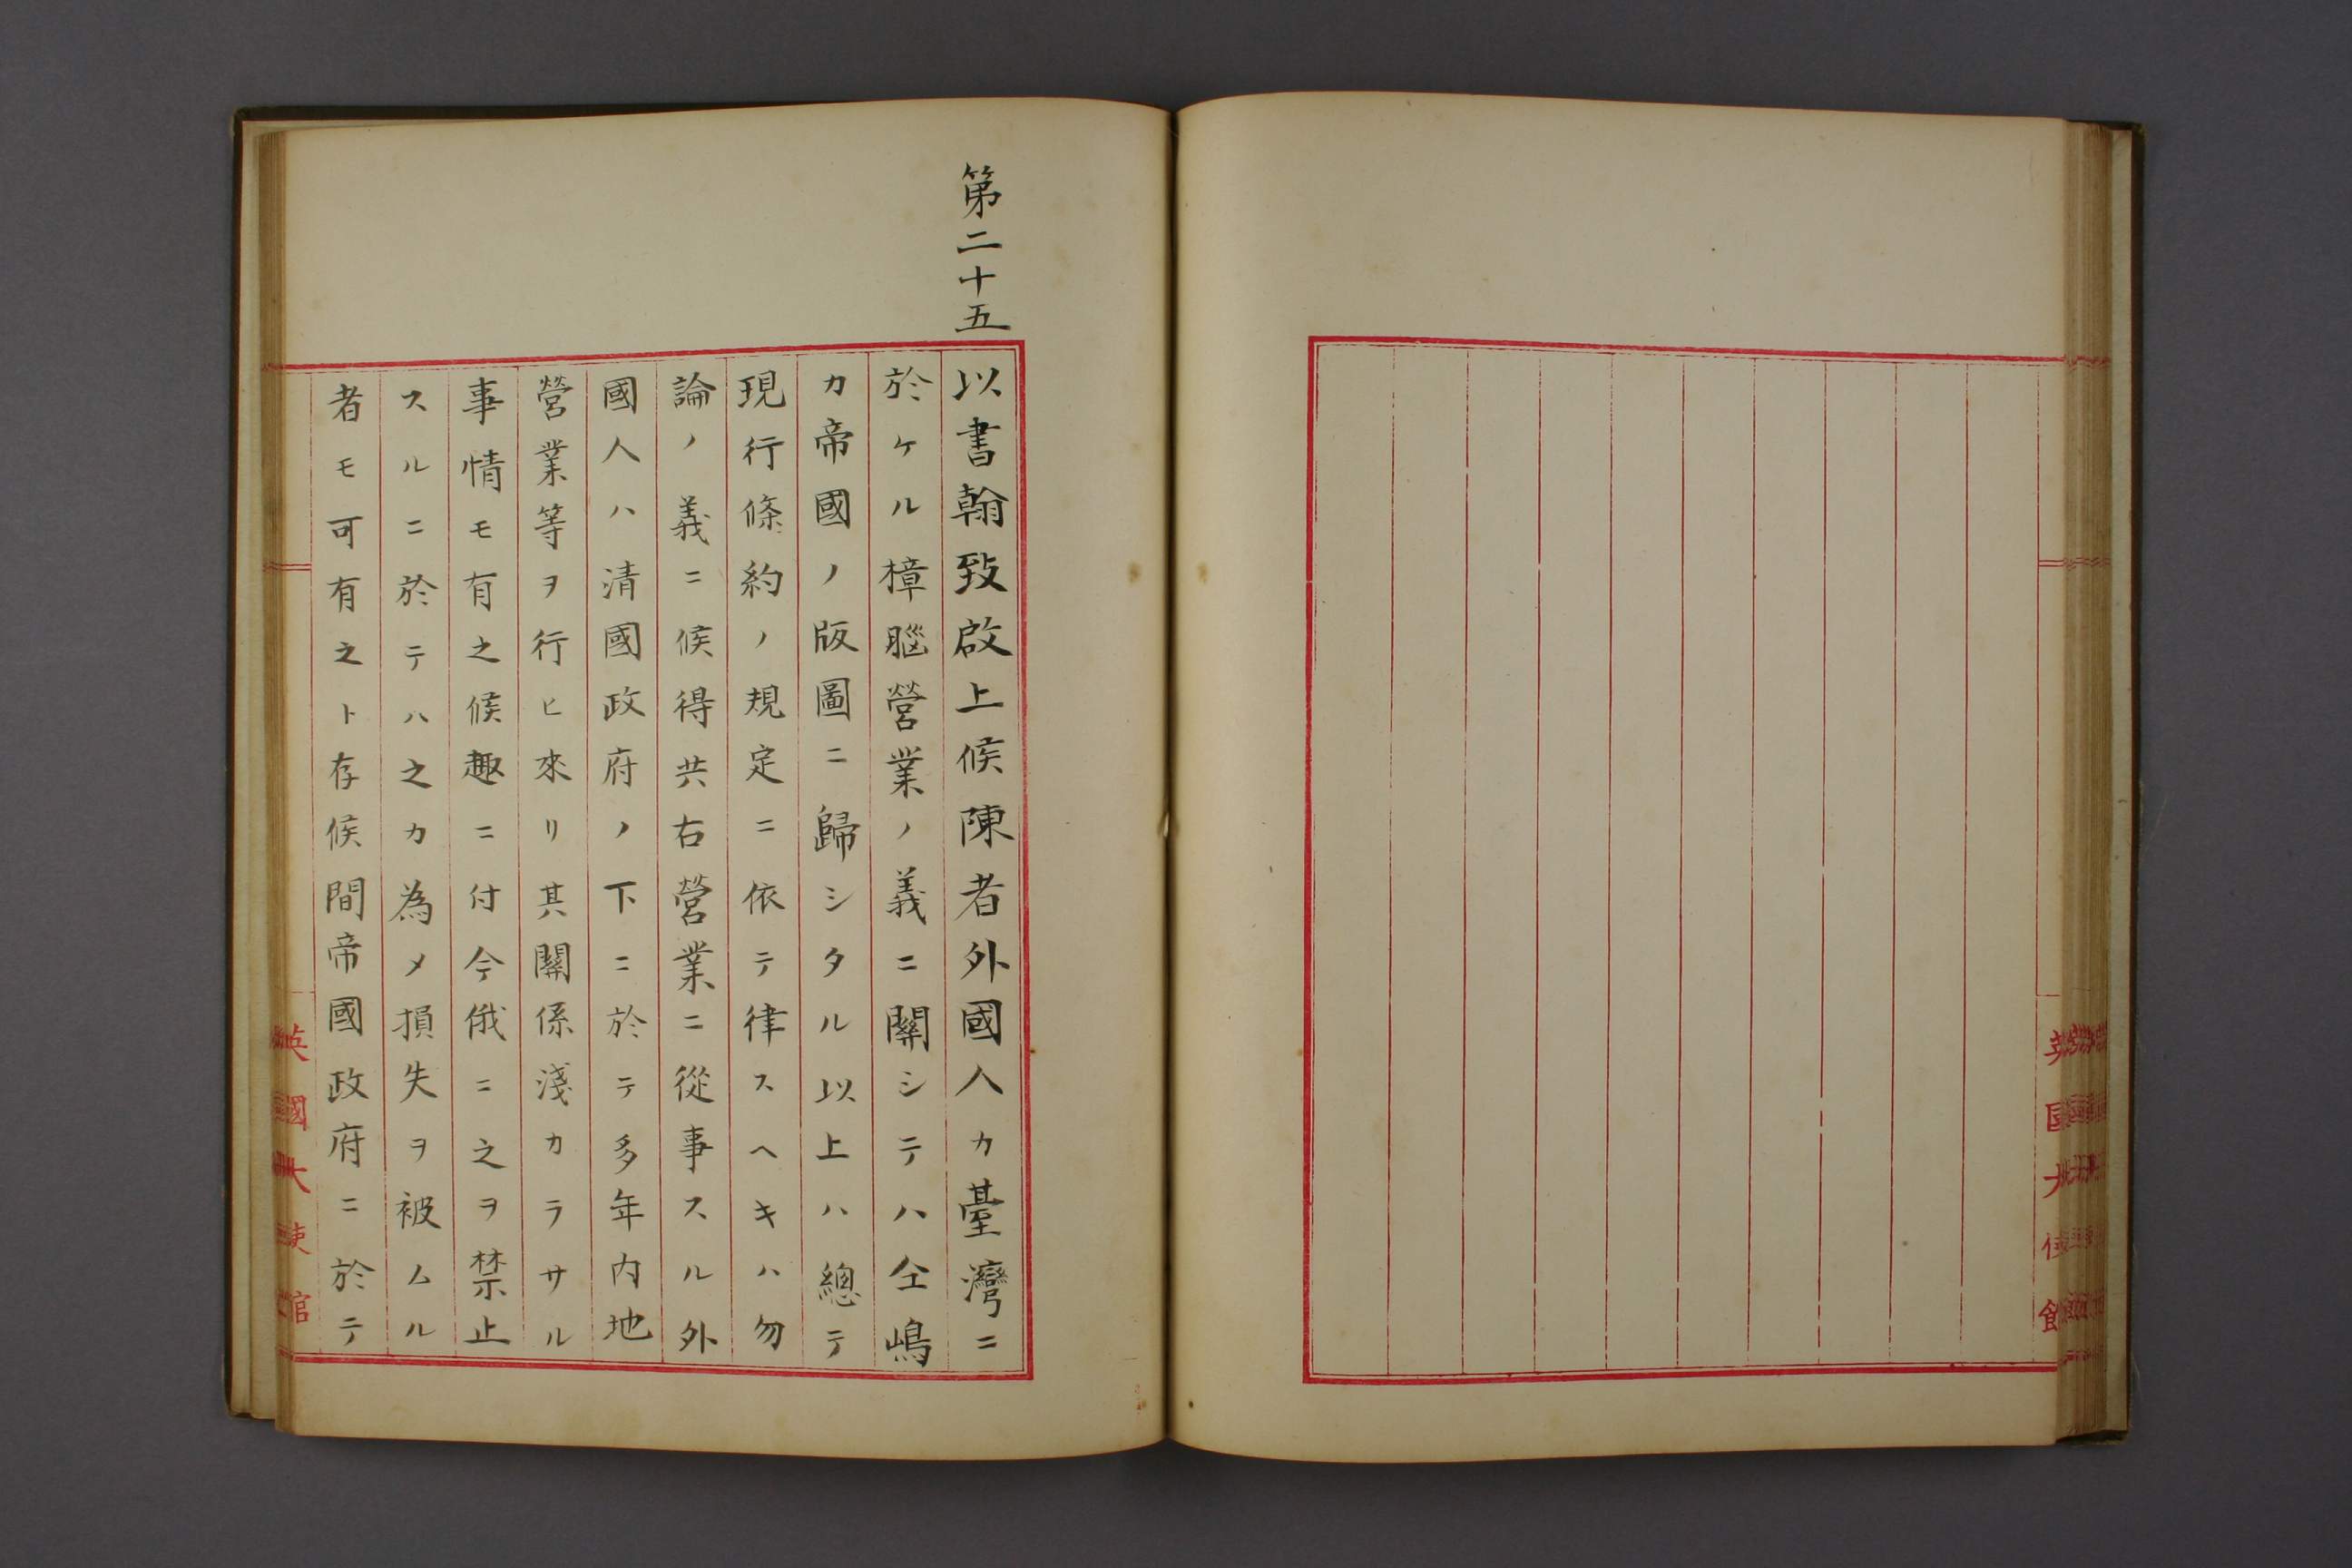 第二十五
以書翰致啟上候陳者外國人カ臺灣ニ
於ケル樟腦營業ノ義ニ關シテハ仝嶋
カ帝國ノ版圖ニ歸シタル以上ハ總テ
現行條約ノ規定ニ依テ律スヘキハ勿
論ノ義ニ候得共右營業ニ從事スル外
國人ハ清國政府ノ下ニ於テ多年内地
營業等ヲ行ヒ來リ其關係淺カラサル
事情モ有之候趣ニ付今俄ニ之ヲ禁止
スルニ於テハ之カ為メ損失ヲ被ムル
者モ可有之ト存候間帝國政府ニ於テ
英國大使館
英國大使館